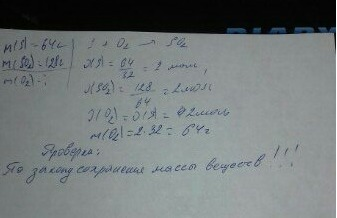 m(S) = 64г
m(SO2) = 128г
m(O2) - ?
S + O2 → SO2
ν(S) = 64/32 = 2 моль,
ν(SO2) = 128/64 = 2 моль
ν(O2) = ν(S) = 2 моль
m(O2) = 2·32 = 64г
Проверка:
По закону сохранения массы веществ!!!